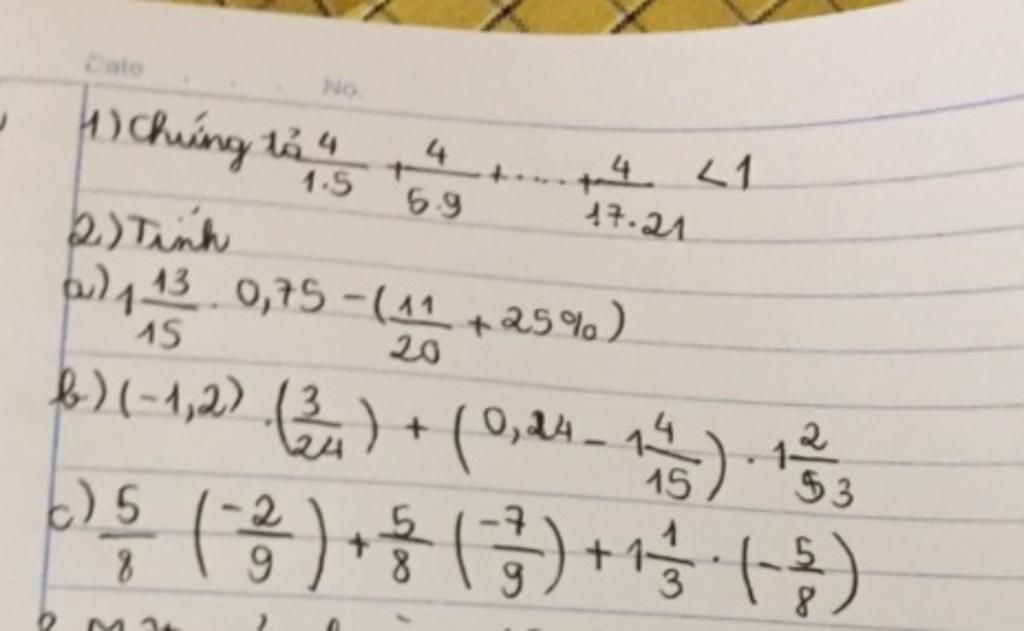 Date No.
1) Chứng tỏ 4/1.5 + 4/5.9 + .... + 4/17.21 < 1
2) Tính
a) 1 13/15 . 0,75 - (11/20 + 25%)
b) (-1,2) . (3/24) + (0,24 - 1 4/15) . 1 2/53
c) 5/8 (-2/9) + 5/8 (-7/9) + 1 1/3 . (-5/8)